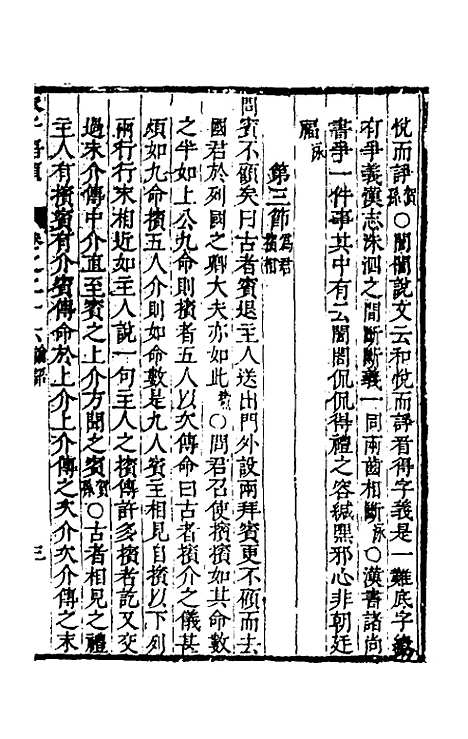 悅而諍賀孫○誾誾說文云和悅而諍看得字義是一難底字
有爭義漢志洙泗之間斷斷義一同兩齒相斷泳○漢書諸尚
書爭一件事其中有云誾誾侃侃得禮之容緘默邪心非朝廷
福泳
第三節爲君擯相
問賓不顧矣曰古者賓退主人送出門外設兩拜賓更不顧而去
國君於列國之卿大夫亦如此○問君召使擯擯如其命數
之半如上公九命則擯者五人以次傳命曰古者擯介之儀甚
煩如九命擯五人介則如命數是九人賓主相見自擯以下列
兩行行末相近如主人說一句主人之擯傳許多擯者訖又交
過末介傳中介直至賓之上介方聞之賓賀孫○古者相見之禮
主人有擯賓有介賓傳命於上介上介傳之次介次介傳之末
三